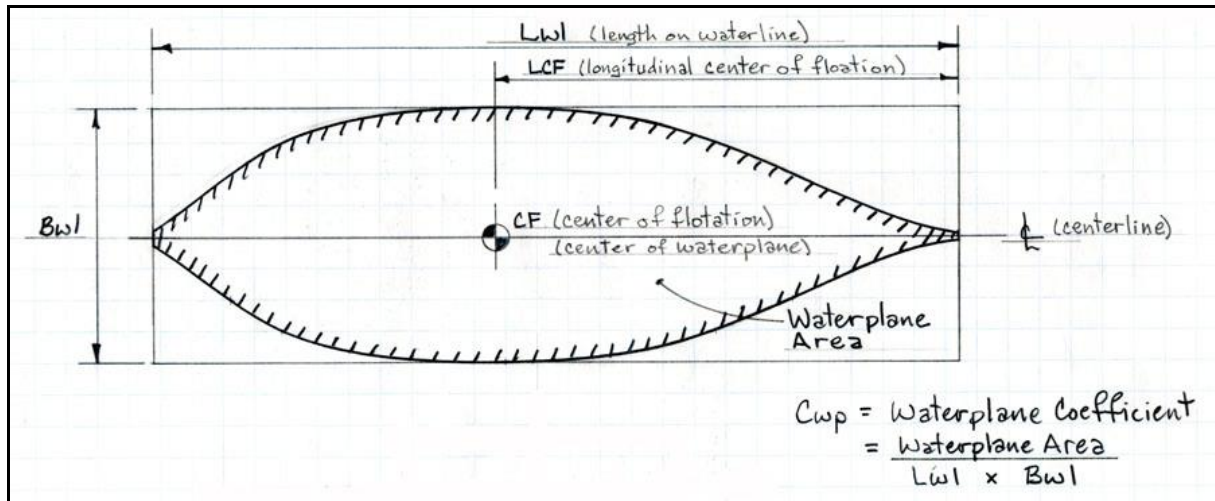 Lwl (length on waterline)
LCF (longitudinal center of floation)
Bwl
CF (center of flotation)
(center of waterplane)
℄ (centerline)
Waterplane
Area
Cwp = Waterplane Coefficient
= Waterplane Area
Lwl x Bwl